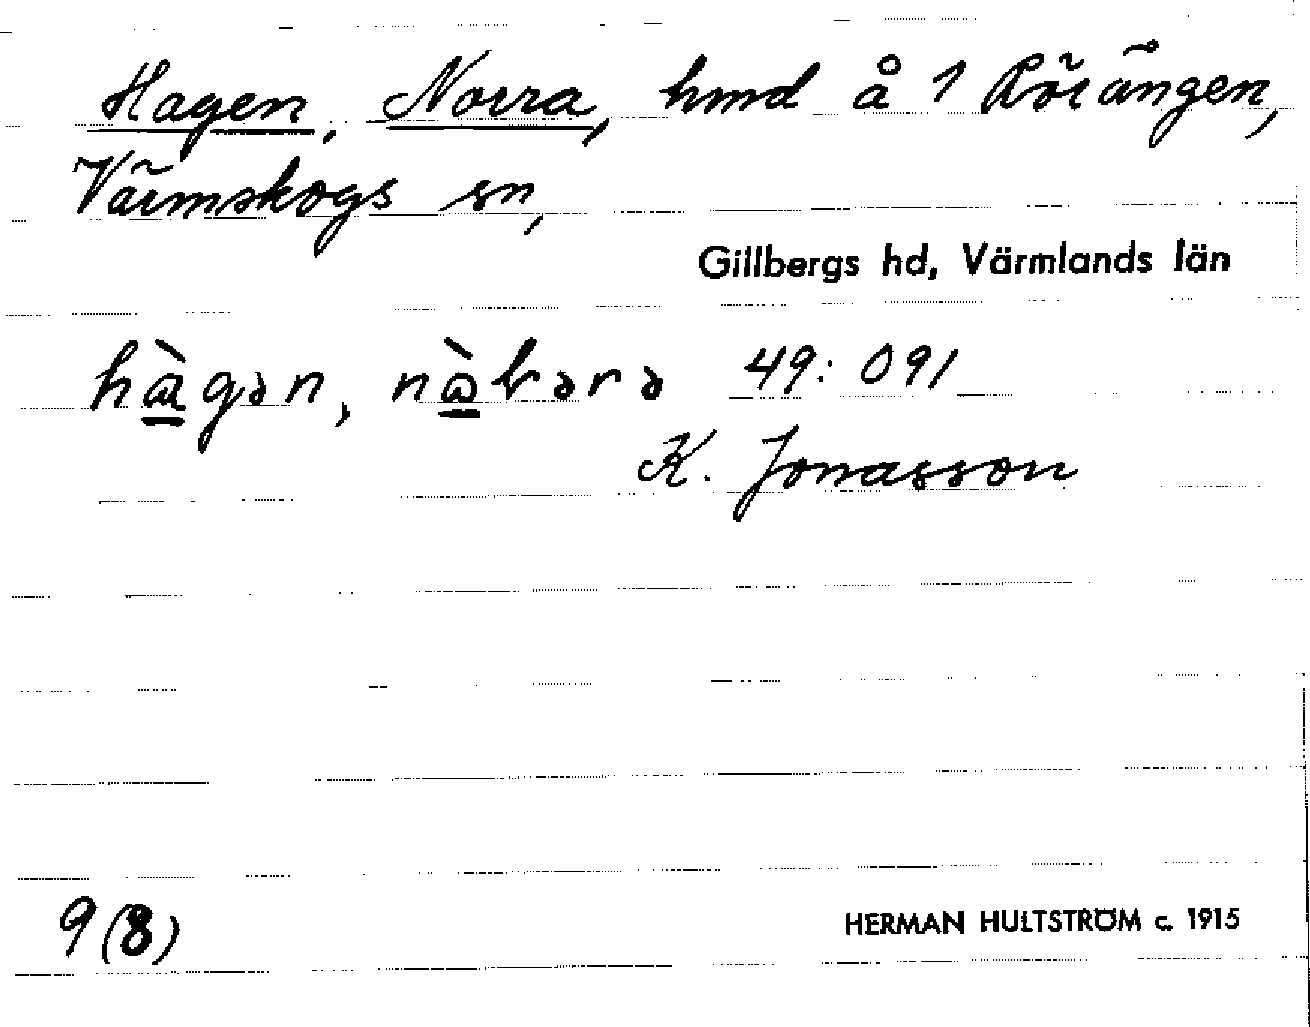 Hagen, Norra, hmd å 1 Rörängen,
Värmskogs sn,
Gillbergs hd, Värmlands län
hàgən, 49:091
K. Jonasson
9(8)
HERMAN HULTSTRÖM c. 1915